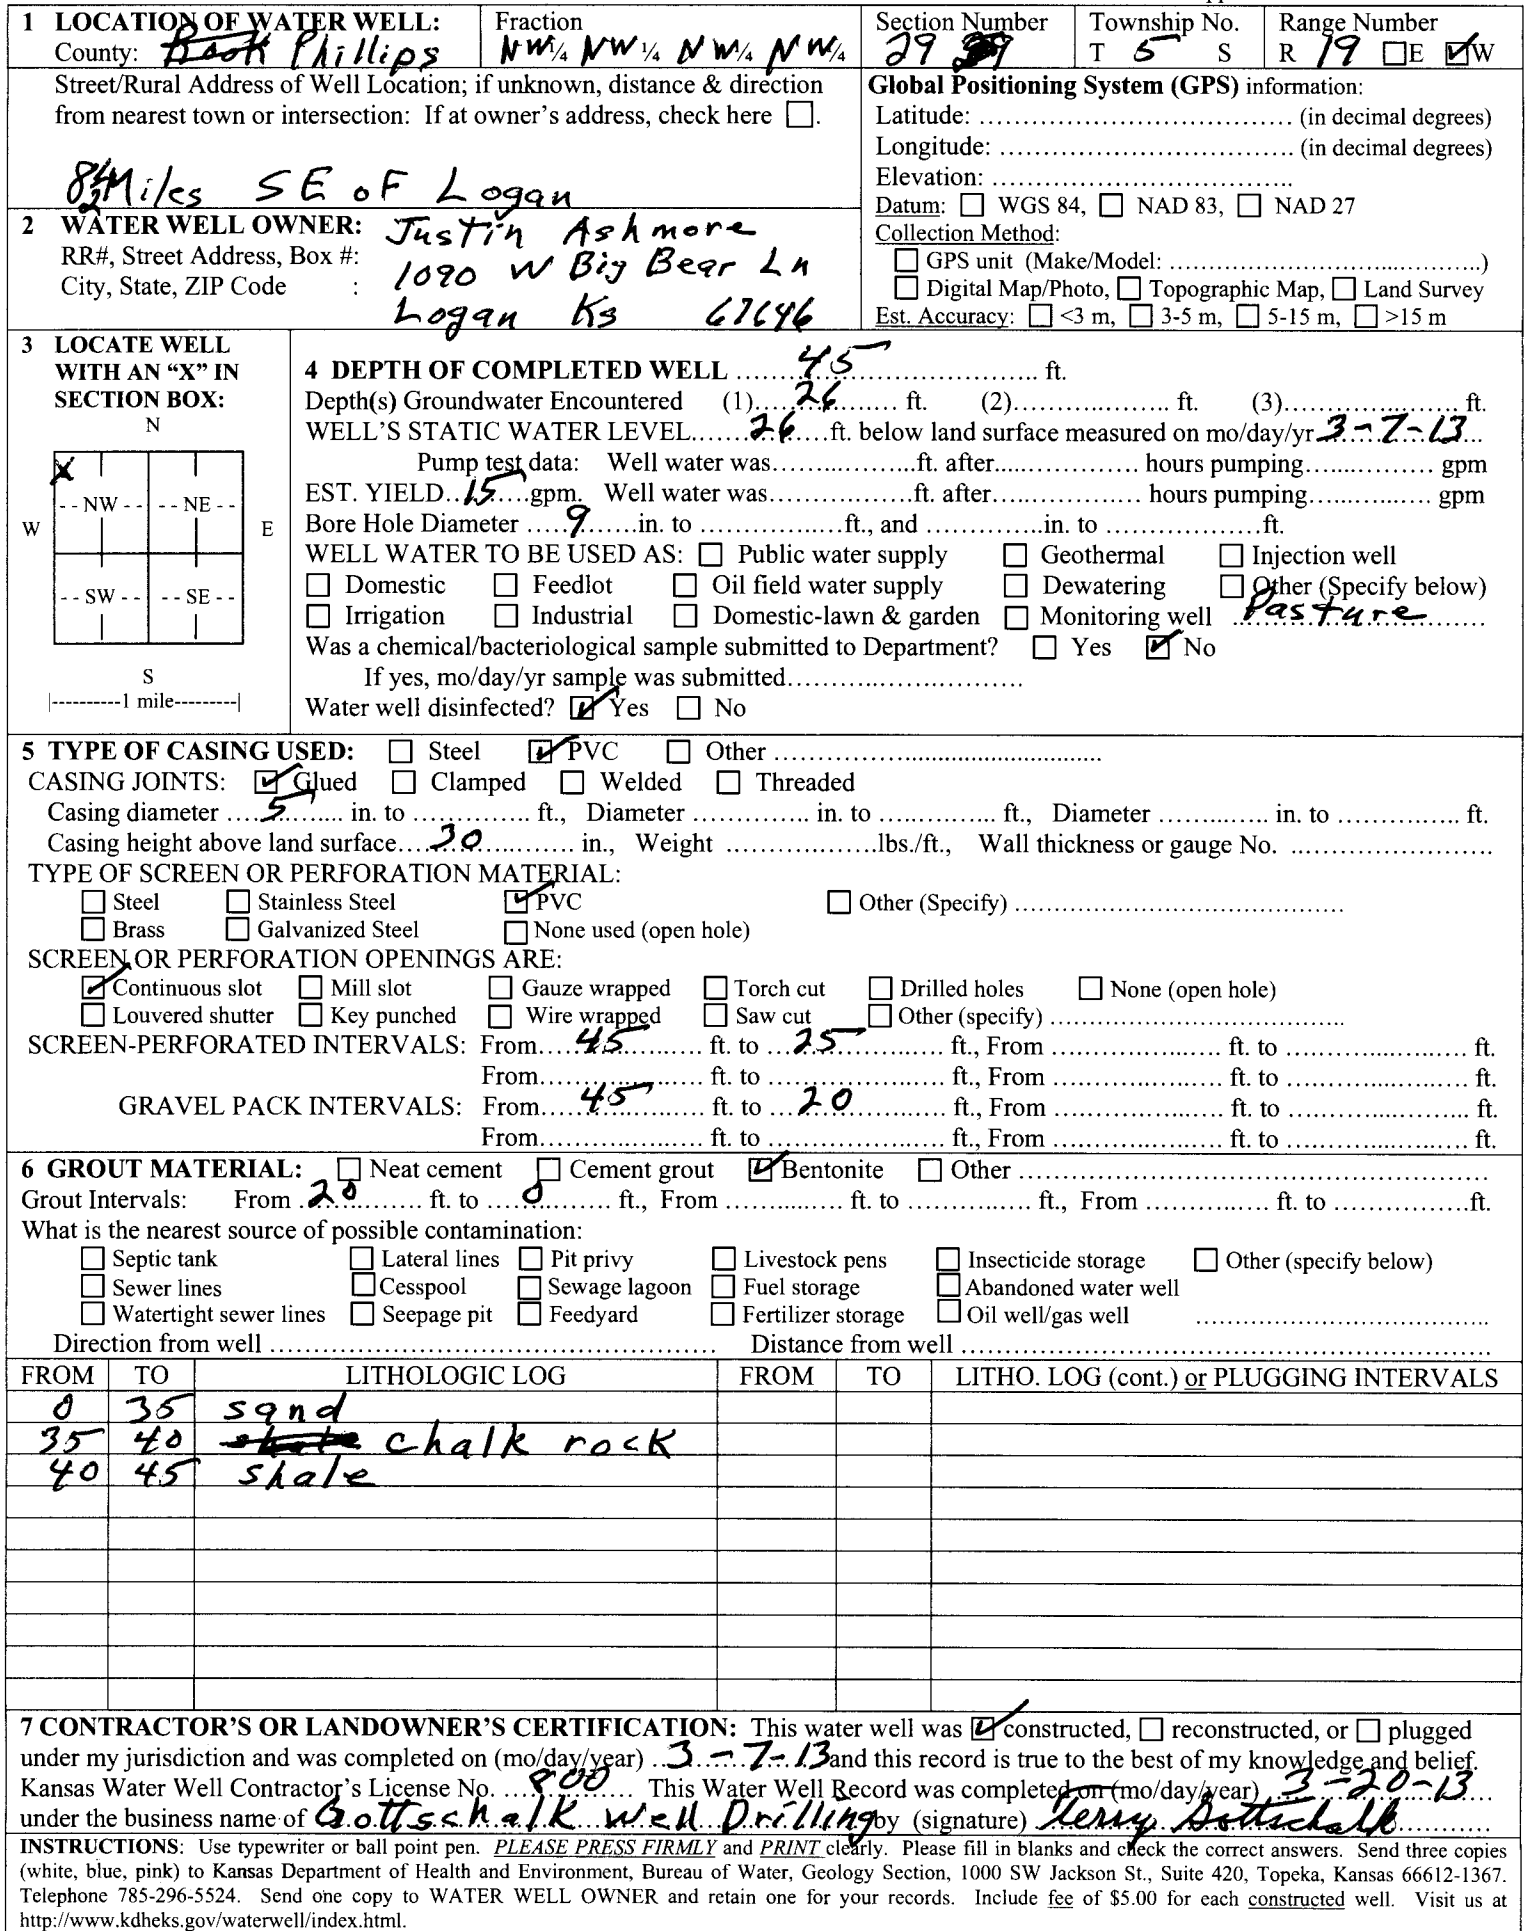 1 LOCATION OF WATER WELL: Fraction Section Number Township No. Range Number
County: Phillips NW¼ NW¼ NW¼ NW¼ 29 T 5 S R 19 ☐E ☑W
Street/Rural Address of Well Location; if unknown, distance & direction
from nearest town or intersection: If at owner's address, check here ☐.
Miles SE oF Logan
Global Positioning System (GPS) information:
Latitude: .................... (in decimal degrees)
Longitude: .................... (in decimal degrees)
Elevation: ....................
Datum: ☐ WGS 84, ☐ NAD 83, ☐ NAD 27
Collection Method:
☐ GPS unit (Make/Model: ....................)
☐ Digital Map/Photo, ☐ Topographic Map, ☐ Land Survey
Est. Accuracy: ☐ <3 m, ☐ 3-5 m, ☐ 5-15 m, ☐ >15 m
2 WATER WELL OWNER: Justin Ashmore
RR#, Street Address, Box #: 1090 W Big Bear Ln
City, State, ZIP Code : Logan Ks 67646
3 LOCATE WELL
WITH AN "X" IN
SECTION BOX:
N
X
NW NE
W E
SW SE
S
|----------1 mile---------|
4 DEPTH OF COMPLETED WELL ....45.... ft.
Depth(s) Groundwater Encountered (1)....26.... ft. (2).......... ft. (3).......... ft.
WELL'S STATIC WATER LEVEL....26....ft. below land surface measured on mo/day/yr 3-7-13
Pump test data: Well water was..........ft. after.......... hours pumping.......... gpm
EST. YIELD..15..gpm. Well water was..........ft. after.......... hours pumping.......... gpm
Bore Hole Diameter ....9....in. to ..........ft., and ..........in. to ..........ft.
WELL WATER TO BE USED AS: ☐ Public water supply ☐ Geothermal ☐ Injection well
☐ Domestic ☐ Feedlot ☐ Oil field water supply ☐ Dewatering ☐ Other (Specify below)
☐ Irrigation ☐ Industrial ☐ Domestic-lawn & garden ☐ Monitoring well Pasture
Was a chemical/bacteriological sample submitted to Department? ☐ Yes ☑ No
If yes, mo/day/yr sample was submitted....................
Water well disinfected? ☑ Yes ☐ No
5 TYPE OF CASING USED: ☐ Steel ☑ PVC ☐ Other ....................
CASING JOINTS: ☑ Glued ☐ Clamped ☐ Welded ☐ Threaded
Casing diameter ....5.... in. to .......... ft., Diameter .......... in. to .......... ft., Diameter .......... in. to .......... ft.
Casing height above land surface....30.... in., Weight ..........lbs./ft., Wall thickness or gauge No. ..........
TYPE OF SCREEN OR PERFORATION MATERIAL:
☐ Steel ☐ Stainless Steel ☑ PVC ☐ Other (Specify) ....................
☐ Brass ☐ Galvanized Steel ☐ None used (open hole)
SCREEN OR PERFORATION OPENINGS ARE:
☑ Continuous slot ☐ Mill slot ☐ Gauze wrapped ☐ Torch cut ☐ Drilled holes ☐ None (open hole)
☐ Louvered shutter ☐ Key punched ☐ Wire wrapped ☐ Saw cut ☐ Other (specify) ....................
SCREEN-PERFORATED INTERVALS: From....45.... ft. to ....25.... ft., From .......... ft. to .......... ft.
From.......... ft. to .......... ft., From .......... ft. to .......... ft.
GRAVEL PACK INTERVALS: From....45.... ft. to ....20.... ft., From .......... ft. to .......... ft.
From.......... ft. to .......... ft., From .......... ft. to .......... ft.
6 GROUT MATERIAL: ☐ Neat cement ☐ Cement grout ☑ Bentonite ☐ Other ....................
Grout Intervals: From ..20.. ft. to ..0.. ft., From .......... ft. to .......... ft., From .......... ft. to ..........ft.
What is the nearest source of possible contamination:
☐ Septic tank ☐ Lateral lines ☐ Pit privy ☐ Livestock pens ☐ Insecticide storage ☐ Other (specify below)
☐ Sewer lines ☐ Cesspool ☐ Sewage lagoon ☐ Fuel storage ☐ Abandoned water well
☐ Watertight sewer lines ☐ Seepage pit ☐ Feedyard ☐ Fertilizer storage ☐ Oil well/gas well ....................
Direction from well .................... Distance from well ....................
FROM TO LITHOLOGIC LOG FROM TO LITHO. LOG (cont.) or PLUGGING INTERVALS
0 35 sand
35 40 chalk rock
40 45 shale
7 CONTRACTOR'S OR LANDOWNER'S CERTIFICATION: This water well was ☑ constructed, ☐ reconstructed, or ☐ plugged
under my jurisdiction and was completed on (mo/day/year) 3-7-13 and this record is true to the best of my knowledge and belief.
Kansas Water Well Contractor's License No. 800 This Water Well Record was completed on (mo/day/year) 3-20-13
under the business name of Gottschalk Well Drilling by (signature) Terry Gottschalk
INSTRUCTIONS: Use typewriter or ball point pen. PLEASE PRESS FIRMLY and PRINT clearly. Please fill in blanks and check the correct answers. Send three copies
(white, blue, pink) to Kansas Department of Health and Environment, Bureau of Water, Geology Section, 1000 SW Jackson St., Suite 420, Topeka, Kansas 66612-1367.
Telephone 785-296-5524. Send one copy to WATER WELL OWNER and retain one for your records. Include fee of $5.00 for each constructed well. Visit us at
http://www.kdheks.gov/waterwell/index.html.